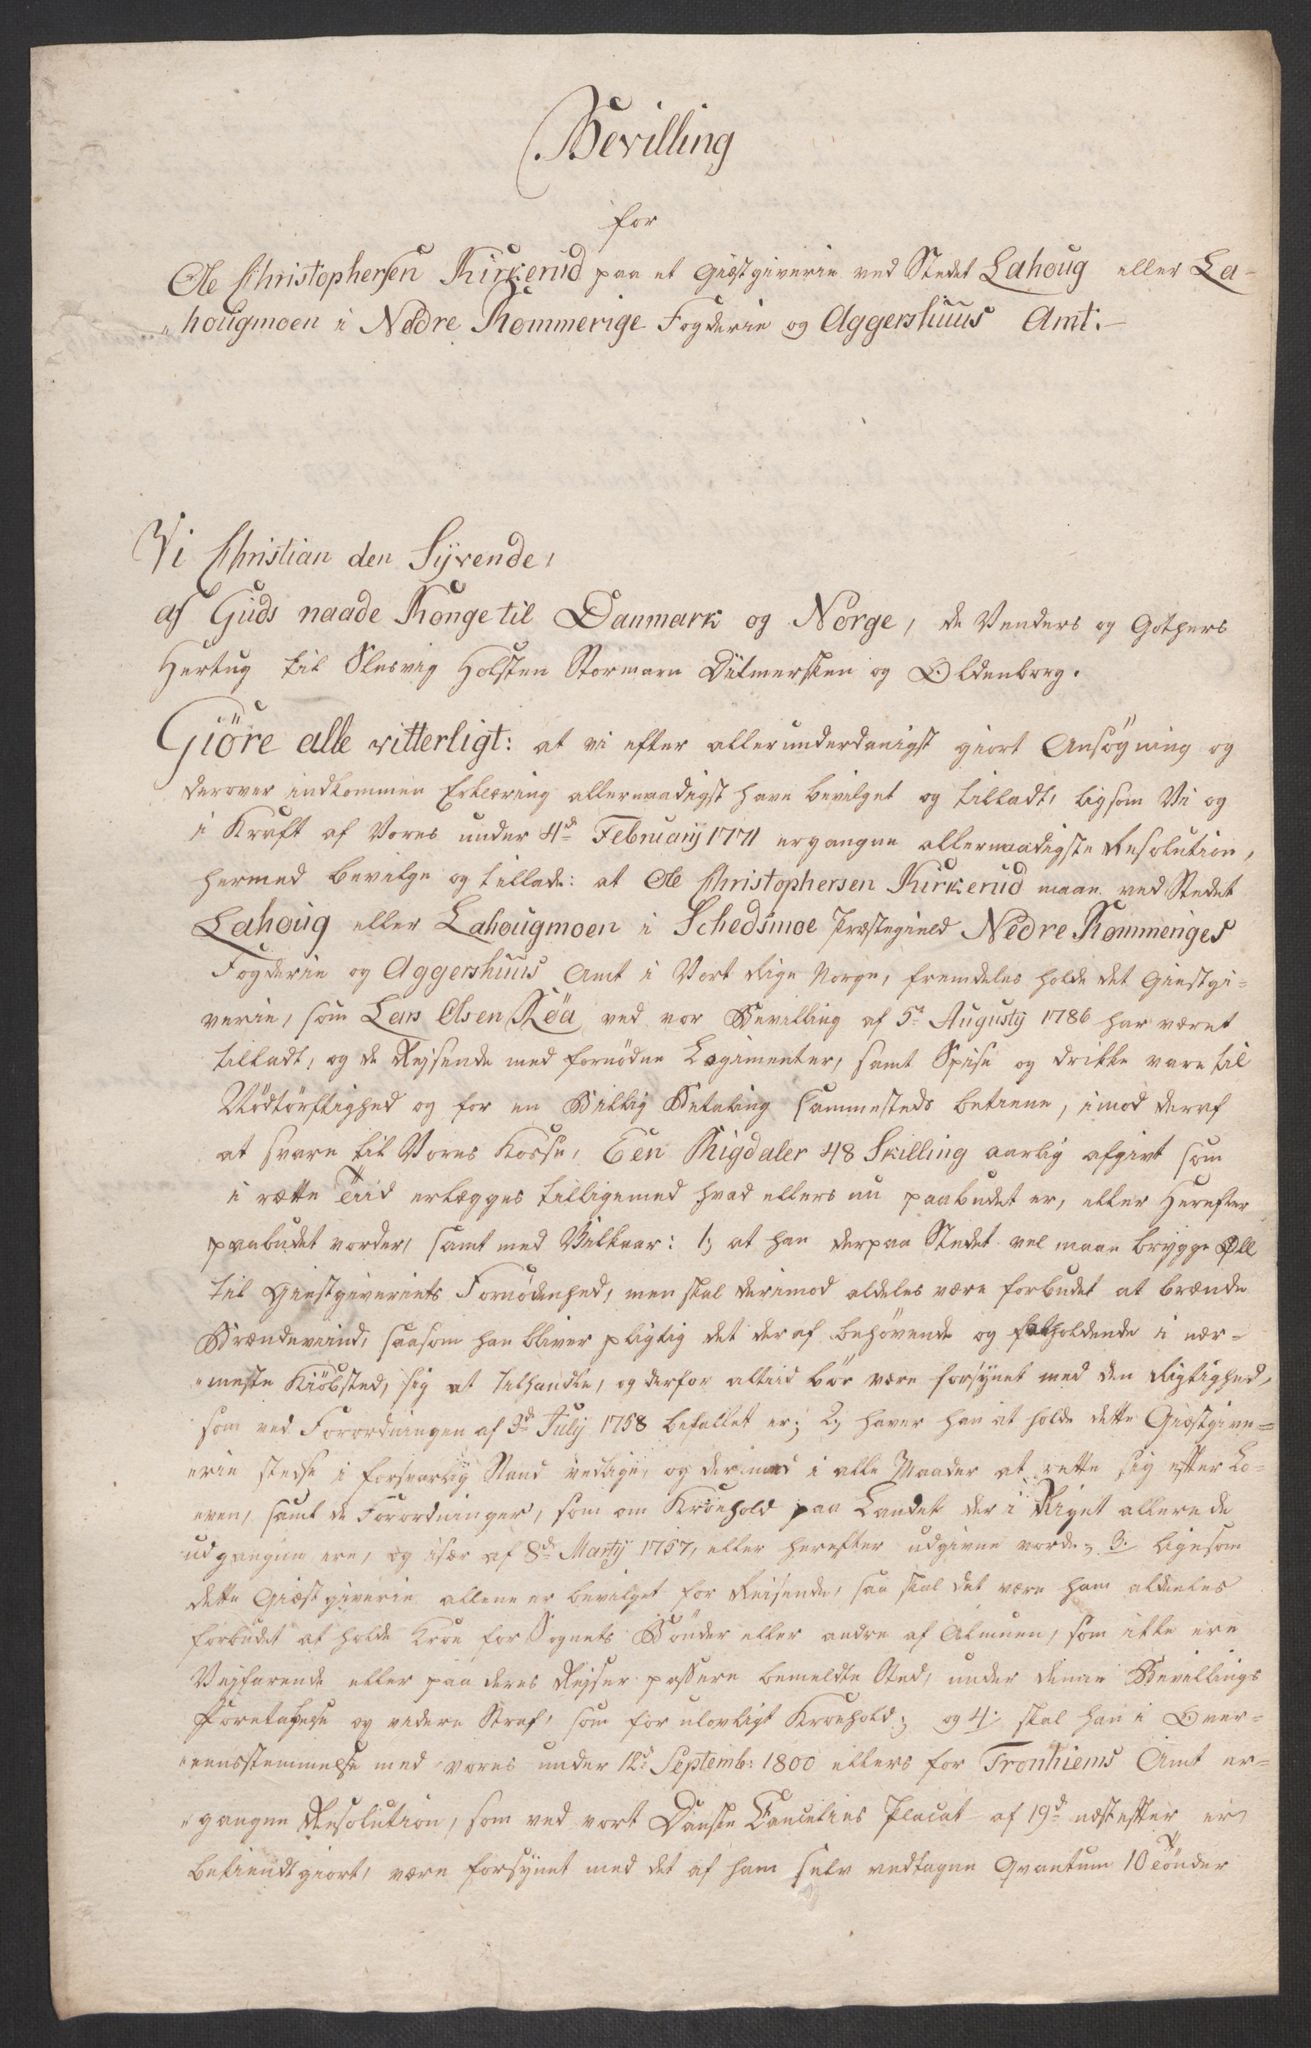 Bevilling
for
Ole Christophersen Kirkerud paa et Giæstgiverie ved Stedet Lahoug eller La-
hougmoen i Nedre Rommerige Fogderie og Aggershuus Amt.
Vi Christian den Syvende,
af Guds naade Konge til Danmark og Norge, de Venders og Gothers
Hertug til Slesvig Holsten Stormarn Ditmersken og Oldenborg.
Giöre alle vitterligt: at vi efter allerunderdanigst giort Ansøgning og
derover indkommen Erklæring allernaadigst have bevilget og tilladt, ligsom Vi og
i Kraft af Vores under 4d February 1771 ergangne allernaadigste Resolution,
hermed bevilge og tillade: at Ole Christophersen Kirkerud maae ved Stedet
Lahoug eller Lahougmoen i Schedsmoe Præstegield Nedre Rommeriges
Fogderie og Aggershuus Amt i Vort Rige Norge, fremdeles holde det Giestgi-
verie, som Lars Olsen Röa ved vor Bevilling af 5t Augusty 1786 har været
tilladt, og de Rejsende med fornödne Logimenter, samt Spise og drikke vare til
Nödtörftighed og for en Billig Betaling sammesteds betiene, imod deraf
at svare til Vores Kasse, Een Rigdaler 48 Skilling aarlig afgivt som
i rette Tiid erlægges tilligemed hvad ellers nu paabudet er, eller Herefter
paabudet vorder, samt med Vilkaar: 1, at han derpaa Stedet vel maae brygge Øll
til Giestgiveriets Fornödenhed, men skal derimod aldeles være forbudet at brænde
Brændeviind, saasom han bliver pligtig det deraf behøvende og falholdende i nær-
meste Kiöbsted, sig at tilhandle, og derfor altiid bör være forsynet med den Rigtighed,
som ved Forordningen af 3d July 1758 befallet er; 2, haver han at holde dette Giæstgive-
erie stedse i forsvarlig Stand vedlige, og derimod i alle Maader at rette sig efter Lo-
ven, samt de Forordninger, som om Kroehold paa Landet der i Riget allerede
udgangne ere, og især af 8d Marty 1757, eller herefter udgivne vorde; 3. ligesom
dette Giæstgiverie allene er bevilget for Reisende, saa skal det være ham aldeeles
forbudet at holde Kroe for Sognets Bönder eller andre af Almuen, som ikke ere
Vejfarende eller paa deres Rejser passere bemeldte Sted, under denne Bevillings
Fortabelse og videre Straf, som for ulovligt Kroehold; og 4. skal han i Over-
eensstemmelse med vores under 12t Septembr: 1800 ellers for Tronhiems Amt er-
gangne Resolution, som ved vort Danske Cancelies Placat af 19d næstefter er
bekiendtgiort, være forsynet med det af ham selv vedtagne Qvantum 10 Tönder